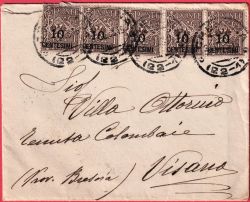 10 10 10 10 10
CENTESIMI CENTESIMI CENTESIMI CENTESIMI CENTESIMI
Sig
Villa Ottorino
Tenuta Colombaie
Visano
(Prov. Brescia)